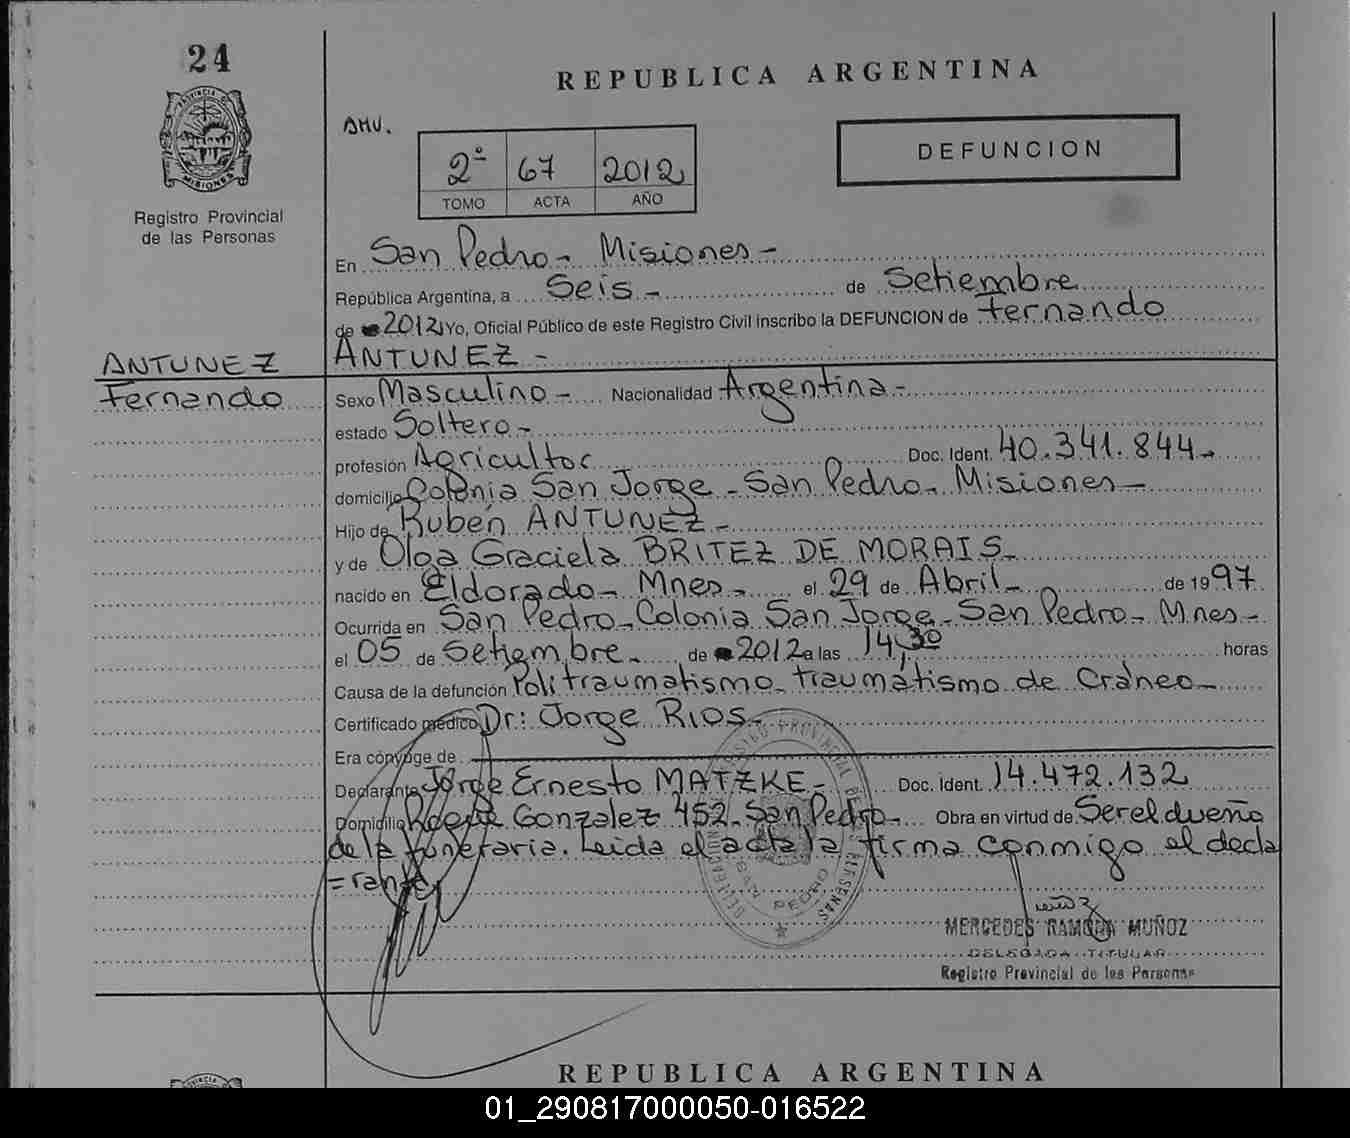 24
PROVINCIA D
MISIONES
Registro Provincial
de las Personas
REPUBLICA ARGENTINA
DEFUNCION
2º 67 2012
TOMO ACTA AÑO
En San Pedro - Misiones -
República Argentina, a Seis - de Setiembre
de 2012 Yo, Oficial Público de este Registro Civil inscribo la DEFUNCION de Fernando
ANTUNEZ -
ANTUNEZ
Fernando
Sexo Masculino - Nacionalidad Argentina -
estado Soltero -
profesión Agricultor Doc. Ident. 40.341.844 -
domicilio Colonia San Jorge - San Pedro - Misiones -
Hijo de Rubén ANTUNEZ -
y de Olga Graciela BRITEZ DE MORAIS -
nacido en Eldorado - Mnes - el 29 de Abril - de 1997
Ocurrida en San Pedro - Colonia San Jorge - San Pedro - Mnes -
el 05 de Setiembre - de 2012 a las 14,30 horas
Causa de la defunción Politraumatismo - traumatismo de Cráneo -
Certificado médico Dr: Jorge RIOS -
Era cónyuge de
Declarante Jorge Ernesto MATZKE - Doc. Ident. 14.472.132
Domicilio Roque Gonzalez 452 - San Pedro - Obra en virtud de Ser el dueño
de la funeraria. Leida el acta la firma conmigo el decla
=rante
SAN PEDRO
MERCEDES RAMONA MUÑOZ
DELEGADA TITULAR
Registro Provincial de las Personas
REPUBLICA ARGENTINA
01_290817000050-016522